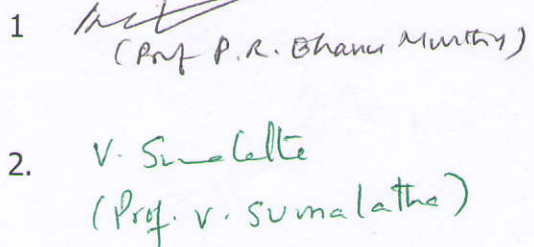 1
(Prof P.R. Bhanu Murthy)
2. V. Sumalatha
(Prof. V. Sumalatha)